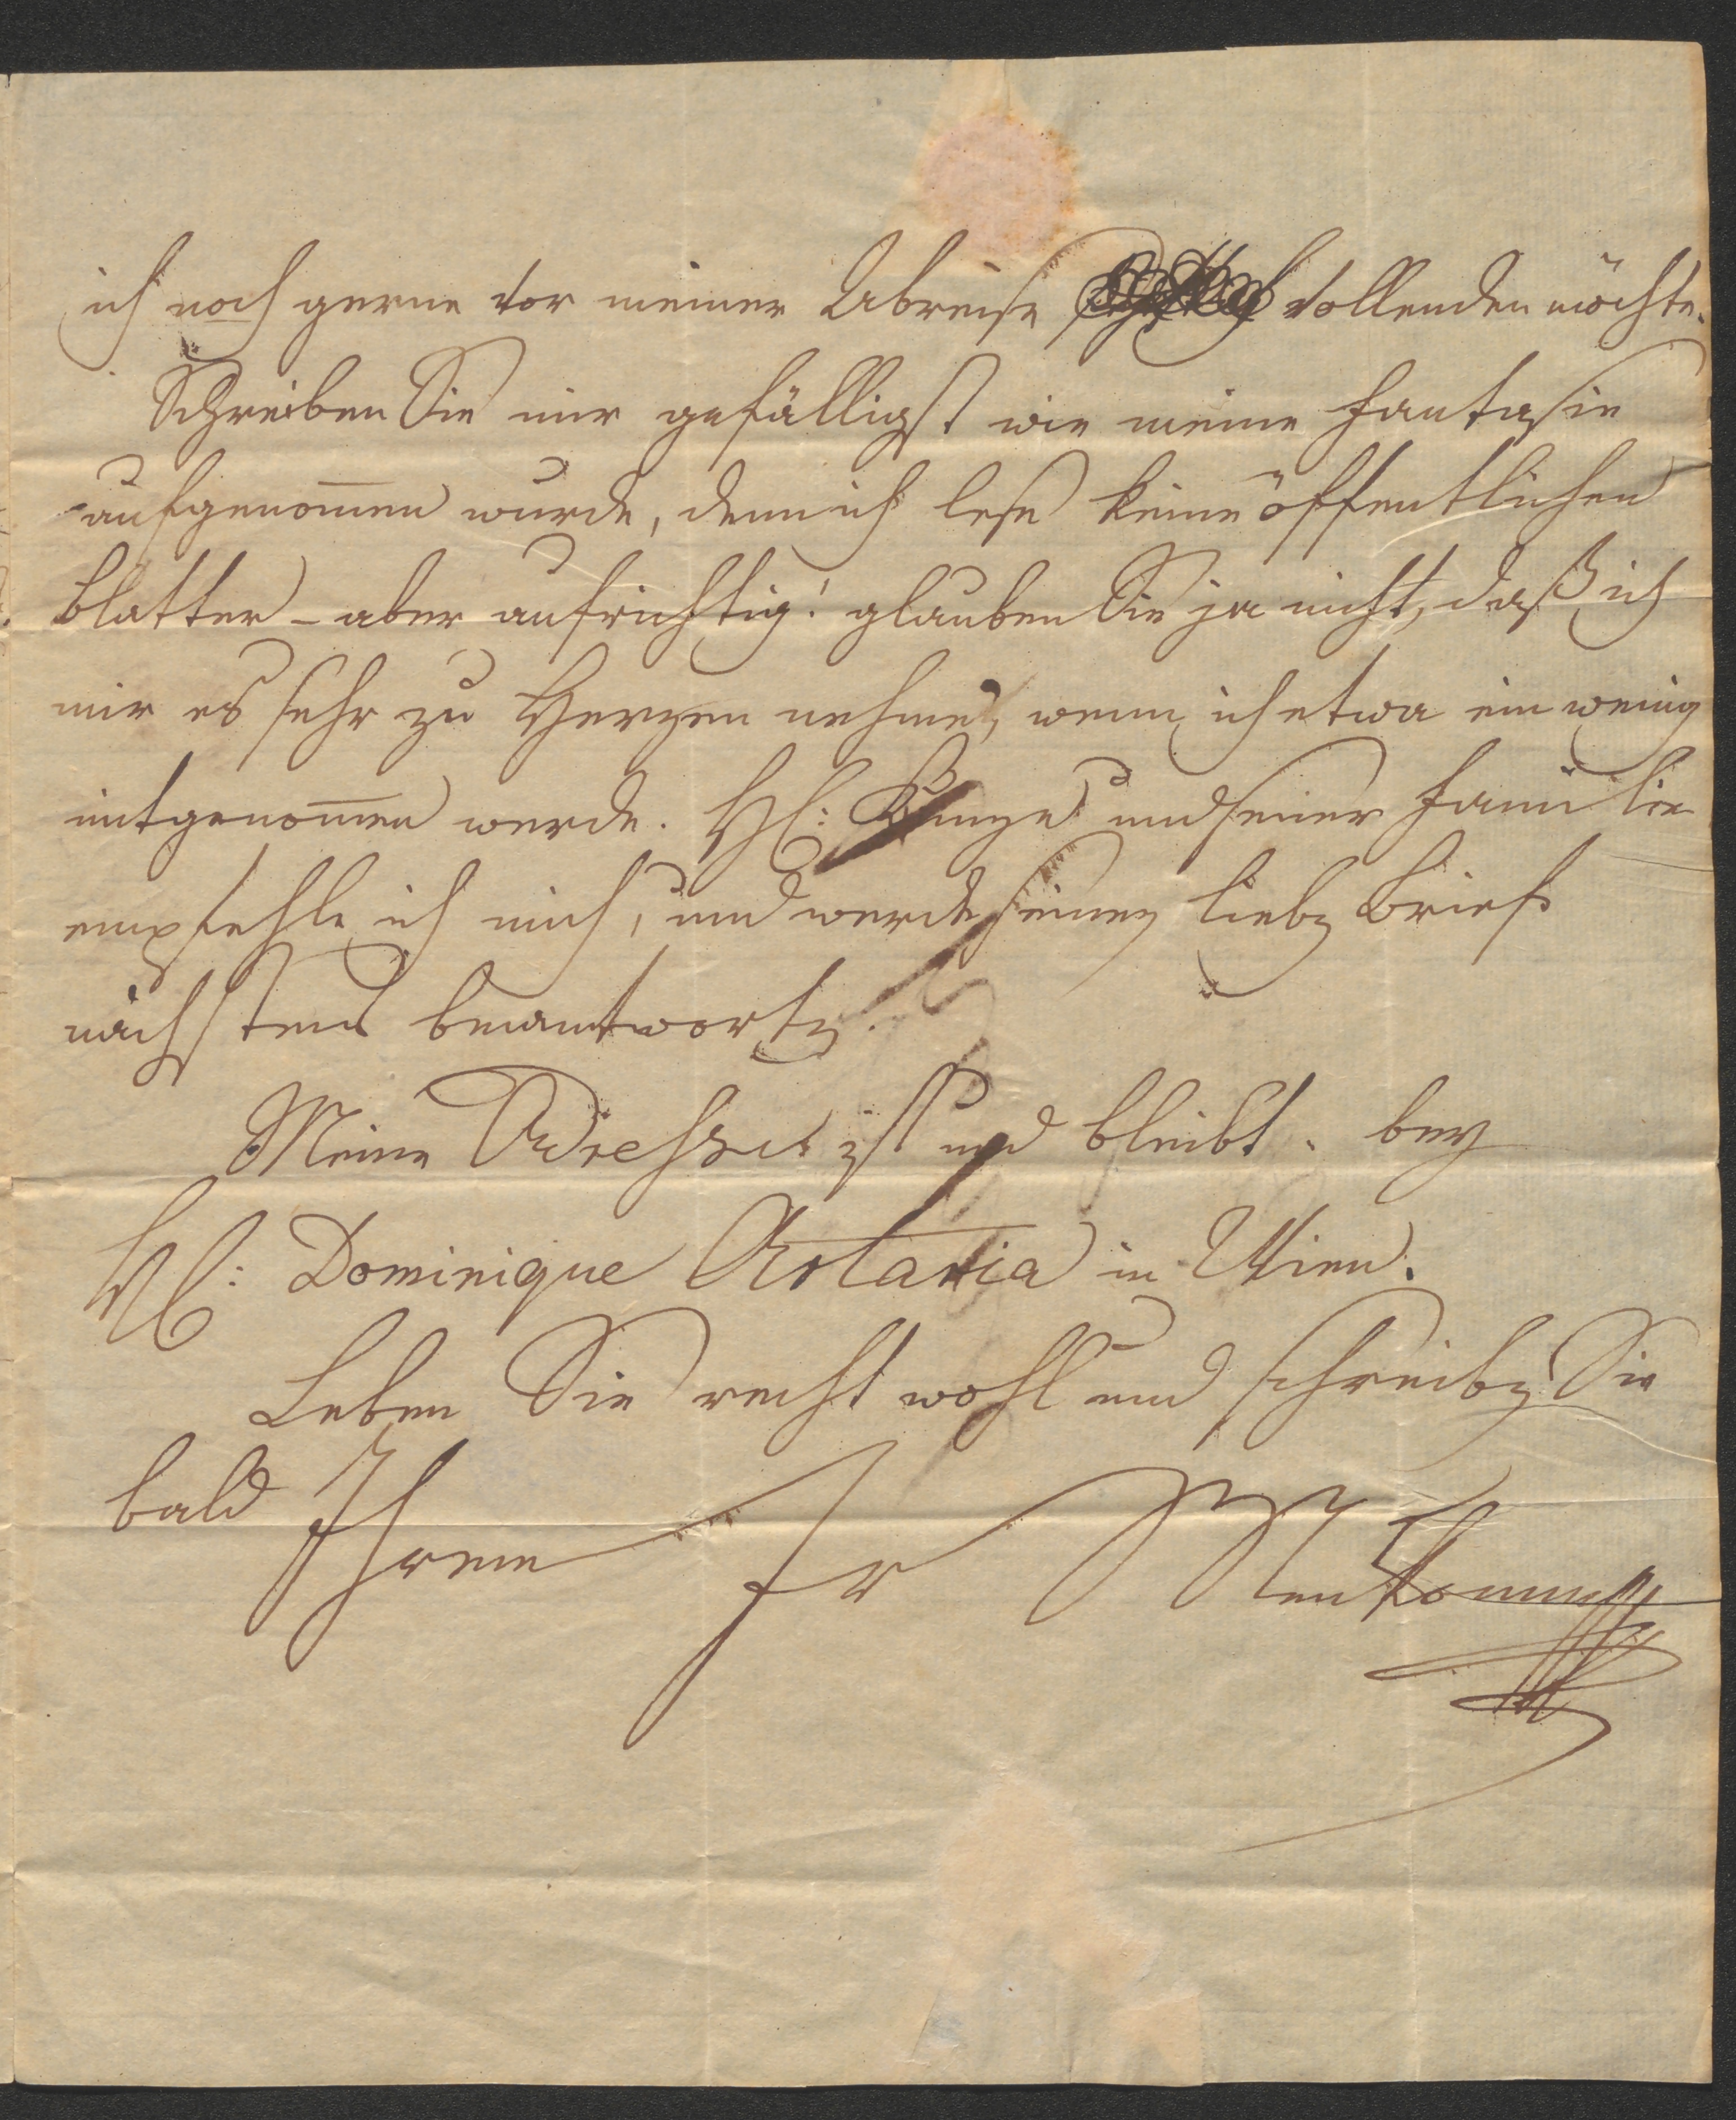 ich noch gerne vor meiner Abreise vollenden möchte.
Schreiben Sie mir gefälligst wie meine Fantasie
aufgenom̅en wurde, denn ich lese keine öffentlichen
Blatter – aber aufrichtig! glauben Sie ja nicht, daß ich
mir es sehr zu Herzen nehme, wenn ich etwa ein wenig
mitgenom̅en werde. H: Kunze und seiner Familie
empfehle ich mich, und werde seinen lieben Brief
nächstens beantworten.
Meine Adresse ist und bleibt. bey
H: Dominique Artaria in Wien.
Leben Sie recht wohl und schreiben Sie
bald Ihrem Fr Neukomm